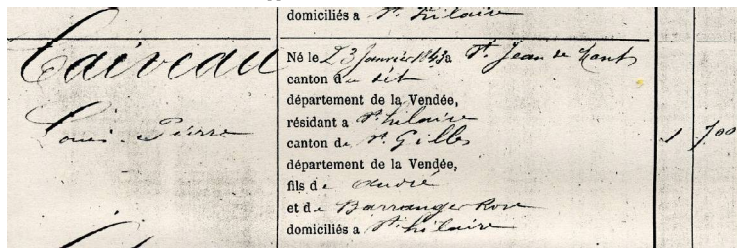 domiciliés a St hilaire
Caiveau
Louis-Pierre
Né le 23 Janvier 1843 a St Jean de Mont
canton du dit
département de la Vendée,
résidant a St hilaire
canton de St Gilles
1 700
département de la Vendée,
fils de
et de Barranger Rose
domiciliés a St hilaire